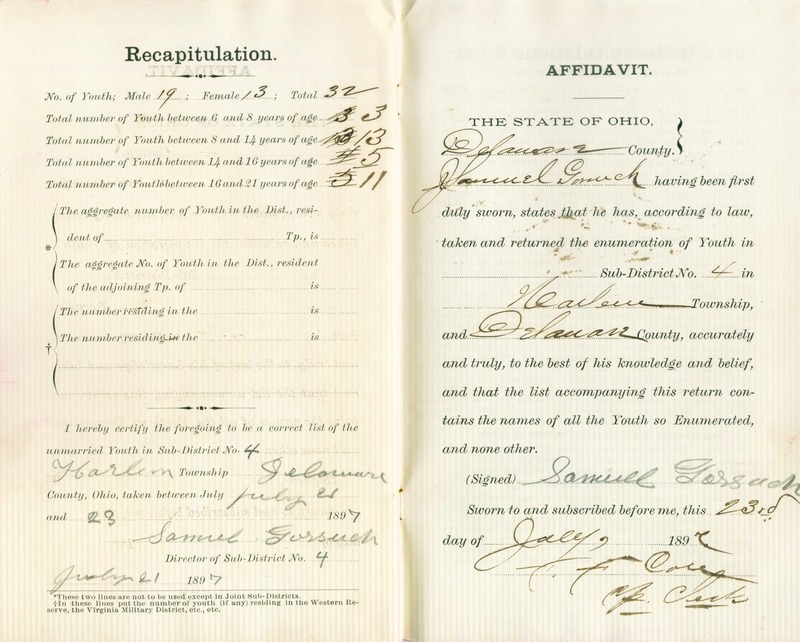 Recapitulation.
No. of Youth; Male 19; Female 13; Total 32
Total number of Youth between 6 and 8 years of age 3 3
Total number of Youth between 8 and 14 years of age 13 13
Total number of Youth between 14 and 16 years of age 5
Total number of Youth between 16 and 21 years of age 5 11
The aggregate number of Youth in the Dist., resi-
dent of Tp., is
*
The aggregate No. of Youth in the Dist., resident
of the adjoining Tp. of is
The number residing in the is
†
The number residing in the is
I hereby certify the foregoing to be a correct list of the
unmarried Youth in Sub-District No. 4
Harlem Township Delaware
County, Ohio, taken between July July 21
and 23 1897
Samuel Gorsuch
Director of Sub-District No. 4
July 21 1897
*These two lines are not to be used except in Joint Sub-Districts.
†In these lines put the number of youth (if any) residing in the Western Re-
serve, the Virginia Military District, etc., etc.
AFFIDAVIT.
THE STATE OF OHIO,
Delaware County.
Samuel Gorsuch having been first
duly sworn, states that he has, according to law,
taken and returned the enumeration of Youth in
Sub-District No. 4 in
Harlem Township,
and Delaware County, accurately
and truly, to the best of his knowledge and belief,
and that the list accompanying this return con-
tains the names of all the Youth so Enumerated,
and none other.
(Signed) Samuel Gorsuch
Sworn to and subscribed before me, this 23rd
day of July 1897